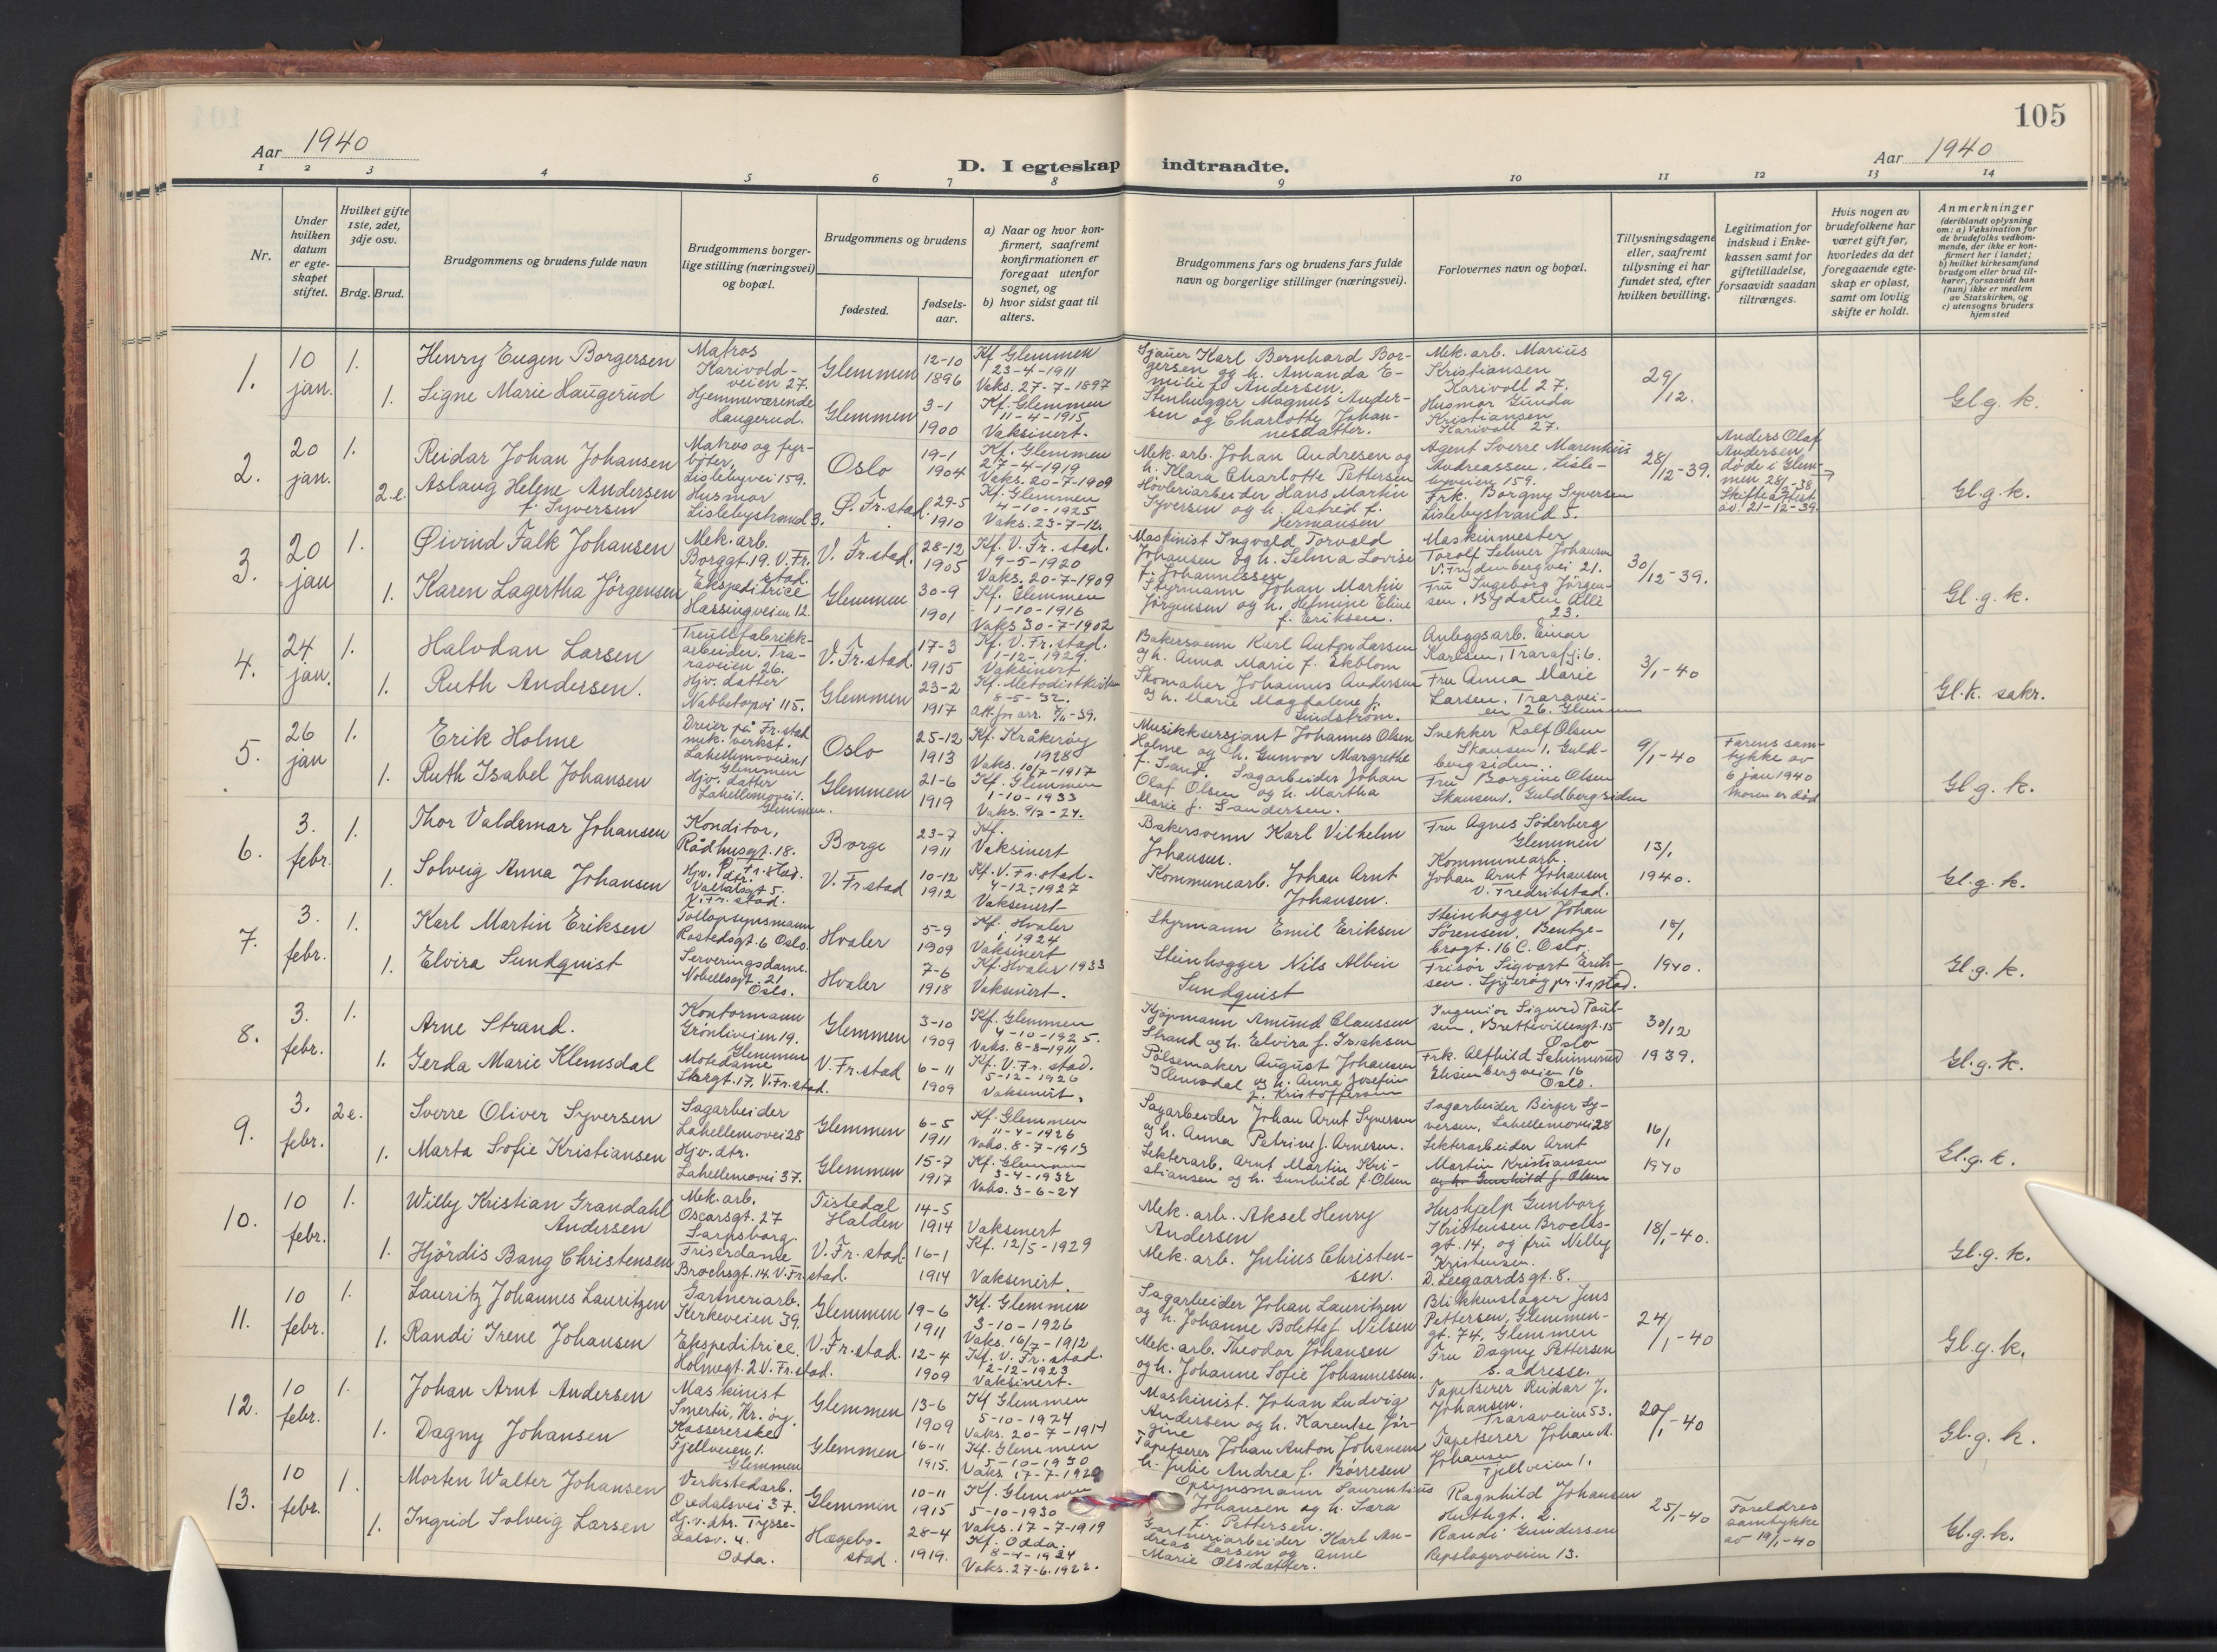 105
Aar 1940
D. I egteskap indtraadte.
Aar 1940
1 2 3 4 5 6 7 8 9 10 11 12 13 14
Nr.
Under hvilken datum er egte-skapet stiftet.
Hvilket gifte 1ste, 2det, 3dje osv.
Brdg. Brud.
Brudgommens og brudens fulde navn
Brudgommens borger-lige stilling (næringsvei) og bopæl.
Brudgommens og brudens
fødested.
fødsels-aar.
a) Naar og hvor kon-firmert, saafremt konfirmationen er foregaat utenfor sognet, og
b) hvor sidst gaat til alters.
Brudgommens fars og brudens fars fulde navn og borgerlige stillinger (næringsvei).
Forlovernes navn og bopæl.
Tillysningsdagene eller, saafremt tillysning ei har fundet sted, efter hvilken bevilling.
Legitimation for indskud i Enke-kassen samt for giftetilladelse, forsaavidt saadan tiltrænges.
Hvis nogen av brudefolkene har været gift før, hvorledes da det foregaaende egte-skap er opløst, samt om lovlig skifte er holdt.
Anmerkninger
(deriblandt oplysning om: a) Vaksination for de brudefolks vedkom-mende, der ikke er kon-firmert her i landet; b) hvilket kirkesamfund brudgom eller brud til-hører, forsaavidt han (hun) ikke er medlem av Statskirken, og c) utensogns bruders hjemsted
1. 10 jan. 1.
Henry Eugen Borgersen
Matros Karivold-veien 27.
Glemmen 12-10 1896
Kf. Glemmen 23-4-1911 Vaks. 27-7-1897
Sjauer Karl Bernhard Bor-gersen og h. Amanda E-milie f. Andersen.
Mek. arb. Marius Kristiansen Karivoll 27.
29/12.
Gl. g. k.
1. Signe Marie Haugerud
Hjemmeværende Haugerud.
Glemmen 3-1 1900
Kf. Glemmen 11-4-1915 Vaksinert.
Stenhugger Magnus Ander-sen og Charlotte Johan-nesdatter.
Husmor Gunda Kristiansen Karivoll 27.
2. 20 jan. 1.
Reidar Johan Johansen
Matros og fyr-böter, Lislebyvei 159.
Oslo 19-1 1904
Kf. Glemmen 27-4-1919 Vaks. 20-7-1909
Mek. arb. Johan Andresen og h. Klara Charlotte Pettersen
Agent Sverre Marenkius Andreassen, Lisle-byveien 159.
28/12-39.
Anders Olaf Andersen, døde i Glem-men 28/2-38 Skifteattest av 21-12-39.
Gl. g. k.
2. e. Aslaug Helene Andersen f. Syversen
Husmor Lislebystrand 3.
Ø. Fr.stad. 29-5 1910
Kf. Glemmen 4-10-1925 Vaks. 23-7-12.
Høvleriarbeider Hans Martin Syversen og h. Astrid f. Hermansen
Frk. Borgny Syversen Lislebystrand 5.
3. 20 jan 1.
Øivind Falk Johansen
Mek. arb. Borggt. 19. V. Fr. stad.
V. Fr.stad. 28-12 1905
Kf. V. Fr. stad. 9-5-1920 Vaks. 20-7-1909
Maskinist Ingvald Torvald Johansen og h. Selma Lovise f. Johannessen
Maskinmester Torolf Selmer Johansen V. Frydenbergvei 21.
30/12-39.
Gl. g. k.
1. Karen Lagertha Jörgensen
Ekspeditrice Hassingveien 12.
Glemmen 30-9 1901
Kf. Glemmen 1-10-1916 Vaks 30-7-1902
Styrmann Johan Martin Jørgensen og h. Helmine Eline f. Eriksen.
Fru Ingeborg Jörgen-sen, Bydalen Alle 23.
4. 24 jan. 1.
Halvdan Larsen
Treullfabrikk-arbeider. Tra-raveien 26.
V. Fr. stad. 17-3 1915
Kf. V. Fr. stad. 1-12-1929. Vaksinert
Bakersvenn Karl Anton Larsen og h. Anna Marie f. Ekblom
Anleggsarb. Einar Karlsen, Traragt. 6.
3/1-40
Gl. k. sakr.
1. Ruth Andersen.
Hjv. datter Nabbetorpvei 115.
Glemmen 23-2 1917
Kf. Metodistkirken 8-5-32. Att. for arr. 7/11-39.
Skomaker Johannes Andersen og h. Marie Magdalene f. Lindstrøm.
Fru Anna Marie Larsen, Traravei-en 26. Glemmen
5. 26 jan 1.
Erik Holme
Dreier på Fr.stad mek. verkst. Lahellemoveien 1 Glemmen
Oslo 25-12 1913
Kf. Kråkerøy 1928 Vaks. 10/7-1917
Musikksersjant Johannes Olsen Holme og h. Gunvor Margrethe f. Sand.
Snekker Rolf Olsen Skansen 1. Guld-bergsiden.
9/1-40
Farens sam-tykke av 6 jan 1940 Moren er død
Gl. g. k.
1. Ruth Isabel Johansen
Hjv. datter Lahellemovei 1. Glemmen.
Glemmen 21-6 1919
Kf. Glemmen 1-10-1933 Vaks. 9/7-24.
Sagarbeider Johan Olaf Olsen og h. Martha Marie f. Sandersen.
Fru Borgine Olsen Skansen 1. Guldbergsiden
6. 3. febr. 1.
Thor Valdemar Johansen
Konditor, Rådhusgt. 18. Fr.stad.
Borge 23-7 1911
Kf. Vaksinert
Bakersvenn Karl Vilhelm Johansen.
Fru Agnes Söderberg Glemmen
13/1 1940.
Gl. g. k.
1. Solveig Anna Johansen
Hjv. dtr. Valhalsgt 5. V. Fr. stad.
V. Fr stad 10-12 1912
Kf. V. Fr. stad. 4-12-1927 Vaksinert
Kommunearb. Johan Arnt Johansen.
Kommunearb. Johan Arnt Johansen V. Fredrikstad.
7. 3. febr. 1.
Karl Martin Eriksen
Tollopsynsmann Rostedsgt. 6 Oslo.
Hvaler 5-9 1909
Kf. Hvaler i 1924 Vaksinert
Styrmann Emil Eriksen
Steinhogger Johan Sørensen, Bentse-brogt. 16 C. Oslo.
18/1 1940.
Gl. g. k.
1. Elvira Sundquist
Serveringsdame. Nobellsgt. 21 Oslo.
Hvaler 7-6 1918
Kf. Hvaler 1933 Vaksinert.
Steinhogger Nils Albin Sundquist
Frisør Sigvart Erik-sen. Spjærøy pr. Fr.stad.
8. 3. febr. 1.
Arne Strand.
Kontormann Grönliveien 19. Glemmen
Glemmen 3-10 1909
Kf. Glemmen 4-10-1925. Vaks. 8-8-1911
Kjøpmann Amund Claussen Strand og h. Elvira f. Isaksen
Ingeniør Sigurd Paul-sen, Brettevillesgt. 15 Oslo
30/12 1939.
Gl. g. k.
1. Gerda Marie Klemsdal
Motedame Storgt. 17. V. Fr.stad.
V. Fr. stad 6-11 1909
Kf. V. Fr. stad. 5-12-1926 Vaksinert.
Pølsemaker August Johansen Klemsdal og h. Anna Josefine f. Kristoffersen
Frk. Alfhild Schimerud Elisenbergveien 16 Oslo.
9. 3. febr. 2 e.
Sverre Oliver Syversen
Sagarbeider Lahellemovei 28
Glemmen 6-5 1911
Kf. Glemmen 11-4-1926 Vaks. 8-7-1913
Sagarbeider Johan Arnt Syversen og h. Anna Petrine f. Arnesen.
Sagarbeider Birger Sy-versen, Lahellemovei 28
16/1 1940
Gl. g. k.
1. Marta Sofie Kristiansen
Hjv. dtr. Lahellemovei 37.
Glemmen 15-7 1917
Kf. Glemmen 3-4-1932 Vaks. 3-6-24
Lekterarb. Arnt Martin Kri-stiansen og h. Gunhild f. Olsen
Lekterarbeider Arnt Martin Kristiansen og h. Gunhild f. Olsen
10. 10 febr. 1.
Willy Kristian Grandahl Andersen
Mek. arb. Oscarsgt. 27 Sarpsborg
Tistedal Halden 14-5 1914
Vaksinert
Mek. arb. Aksel Henry Andersen
Hushjelp Gunborg Kristensen Brochs-gt. 14. og fru Nelly Kristensen. D. Leegaardsgt. 8.
18/1-40.
Gl. g. k.
1. Hjördis Bang Christensen
Friserdame Brochsgt. 14. V. Fr.stad.
V. Fr. stad. 16-1 1914
Kf. 12/5-1929 Vaksinert.
Mek. arb. Julius Christen-sen.
11. 10 febr. 1.
Lauritz Johannes Lauritzen
Gartneriarb. Kirkeveien 39.
Glemmen 19-6 1911
Kf. Glemmen 3-10-1926 Vaks. 16/7-1912
Sagarbeider Johan Lauritzen og h. Johanne Bolette f. Nilsen
Blikkenslager Jens Pettersen, Glemmen-gt. 74, Glemmen
24/1-40
Gl. g. k.
1. Randi Irene Johansen
Ekspeditrice. Holmegt. 2 V. Fr.stad.
V. Fr. stad. 12-4 1909
Kf. V. Fr. stad. 2-12-1923 Vaksinert.
Mek. arb. Theodor Johansen og h. Johanne Sofie Johannessen.
Fru Dagny Pettersen s. adresse.
12. 10 febr. 1.
Johan Arnt Andersen
Maskinist Smertu, Kr. øy.
Glemmen 13-6 1909
Kf Glemmen 5-10-1924 Vaks. 20-7-1914
Maskinist. Johan Ludvig Andersen og h. Karentse Jør-gine
Tapetserer Reidar J. Johansen. Traraveien 53.
20/1-40
Gl. g. k.
1. Dagny Johansen
Kassererske Fjellveien 1. Glemmen
Glemmen 16-11 1915.
Kf. Glemmen 5-10-1930 Vaks. 17-7-1920
Tapetserer Johan Anton Johansen h. Julie Andrea f. Børresen
Tapetserer Johan A. Johansen Fjellveien 1.
13. 10 febr. 1.
Morten Walter Johansen
Verkstedarb. Ordalsvei 37.
Glemmen 10-11 1915
Kf. Glemmen 5-10-1930 Vaks. 17-7-1919
Opsynsmann Laurentius Johansen og h. Sara f. Pettersen.
Ragnhild Johansen Huthgt. 2.
25/1-40
Foreldres samtykke av 19/1-40
Gl. g. k.
1. Ingrid Solveig Larsen
Hj. v. dtr. Tysse-dalsv. 4. Odda.
Hægebo-stad. 28-4 1919.
Kf. Odda. 8-4-1934 Vaks. 27-6-1922.
Gartneriarbeider Karl An-dreas Larsen og Anne Marie Olsdatter.
Randi Gundersen Repslagerveien 13.